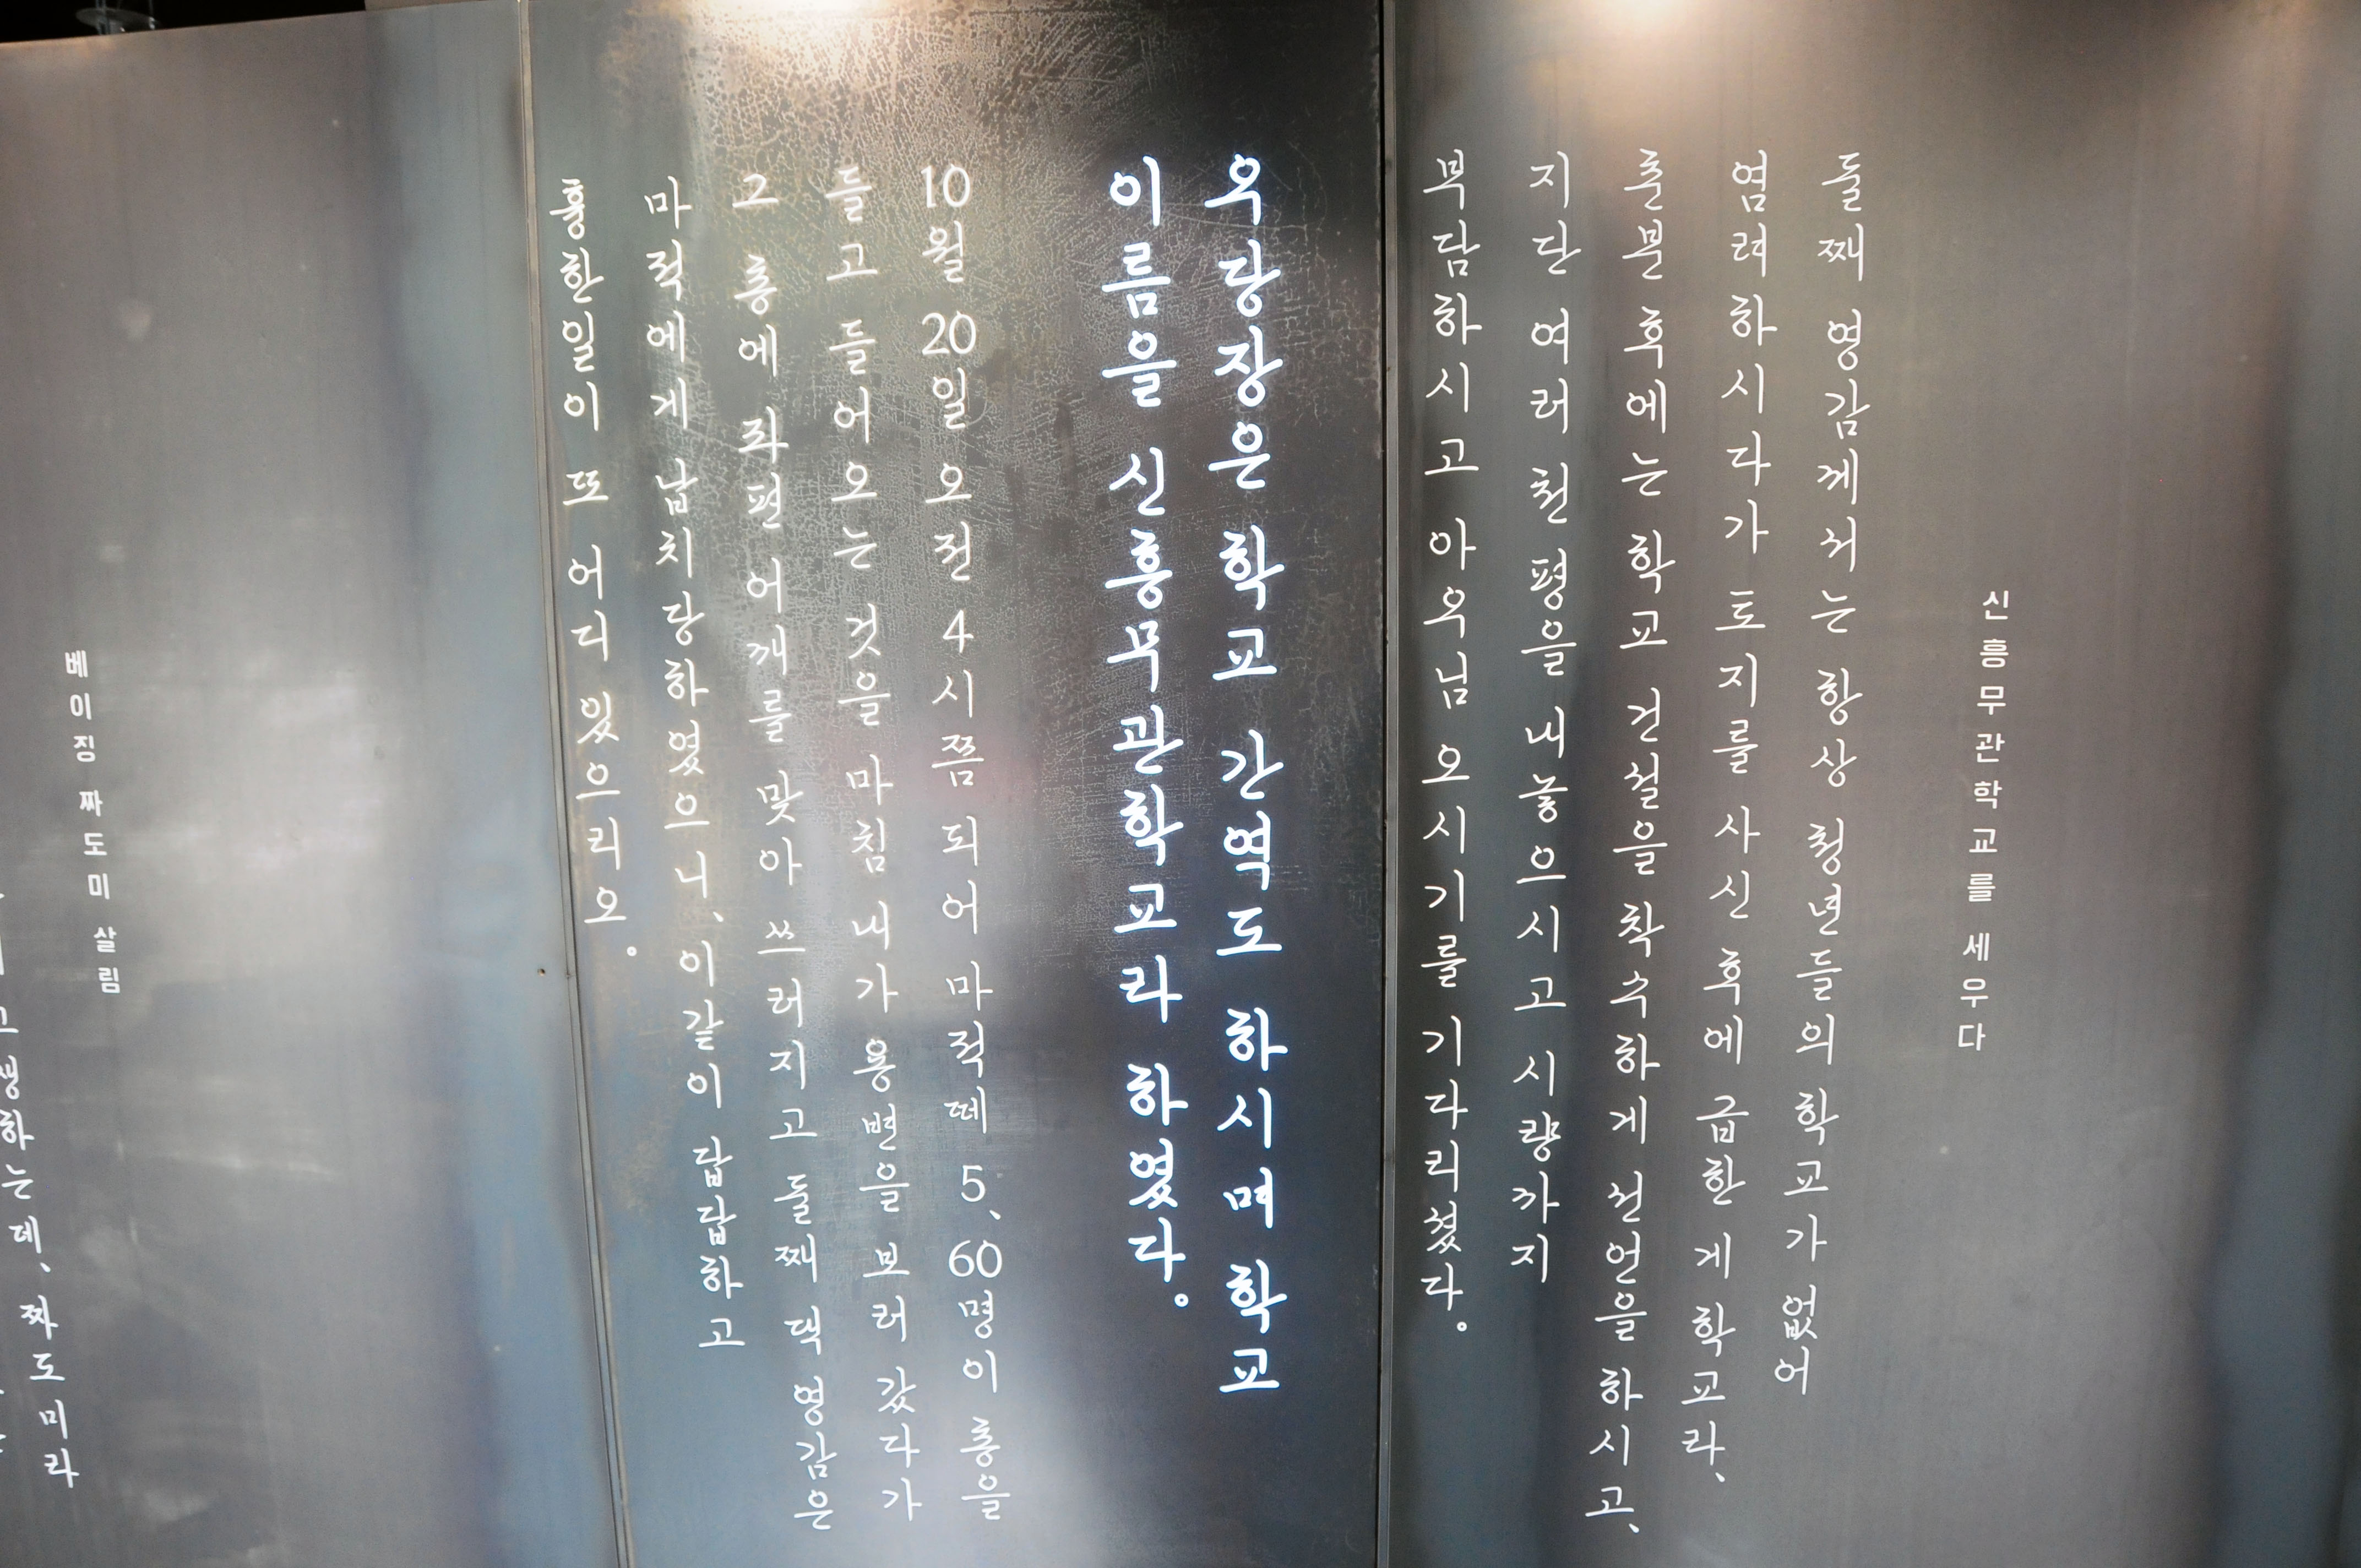 신흥무관학교를 세우다
둘째 영감께서는 항상 청년들의 학교가 없어
염려하시다가 토지를 사신 후에 급한 게 학교라,
춘분 후에는 학교 건설을 착수하게 선언을 하시고,
지단 여러 천 평을 내놓으시고 시량까지
부담하시고 아우님 오시기를 기다리셨다.
우당장은 학교 간역도 하시며 학교
이름을 신흥무관학교라 하였다.
10월 20일 오전 4시쯤 되어 마적떼 5, 60명이 총을
들고 들어오는 것을 마침 내가 용변을 보러 갔다가
그 총에 좌편 어깨를 맞아 쓰러지고 둘째 댁 영감은
마적에게 납치당하였으니, 이같이 답답하고
흉한일이 또 어디 있으리오.
베이징 짜도미 살림
생하는데, 짜도미라